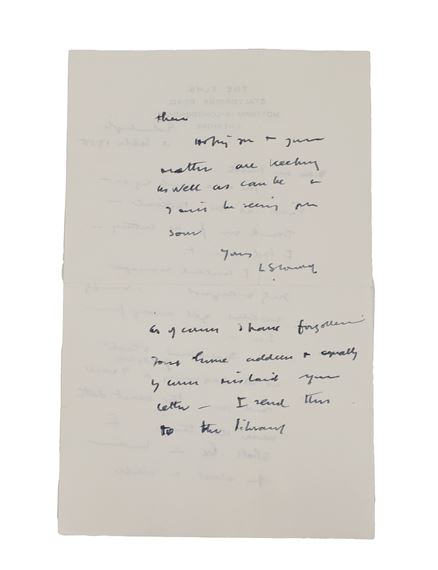 them
Hoping you & your
mother are keeping
as well as can be &
be seeing you
soon
Yours
L S Lowry
As of course I have forgotten
your home address & equally
of course mislaid your
letter – I send this
to the library